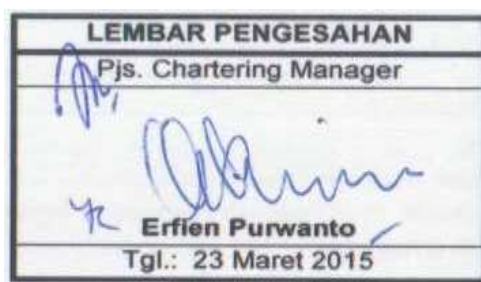 LEMBAR PENGESAHAN
Pjs. Chartering Manager
Erfien Purwanto
Tgl.: 23 Maret 2015